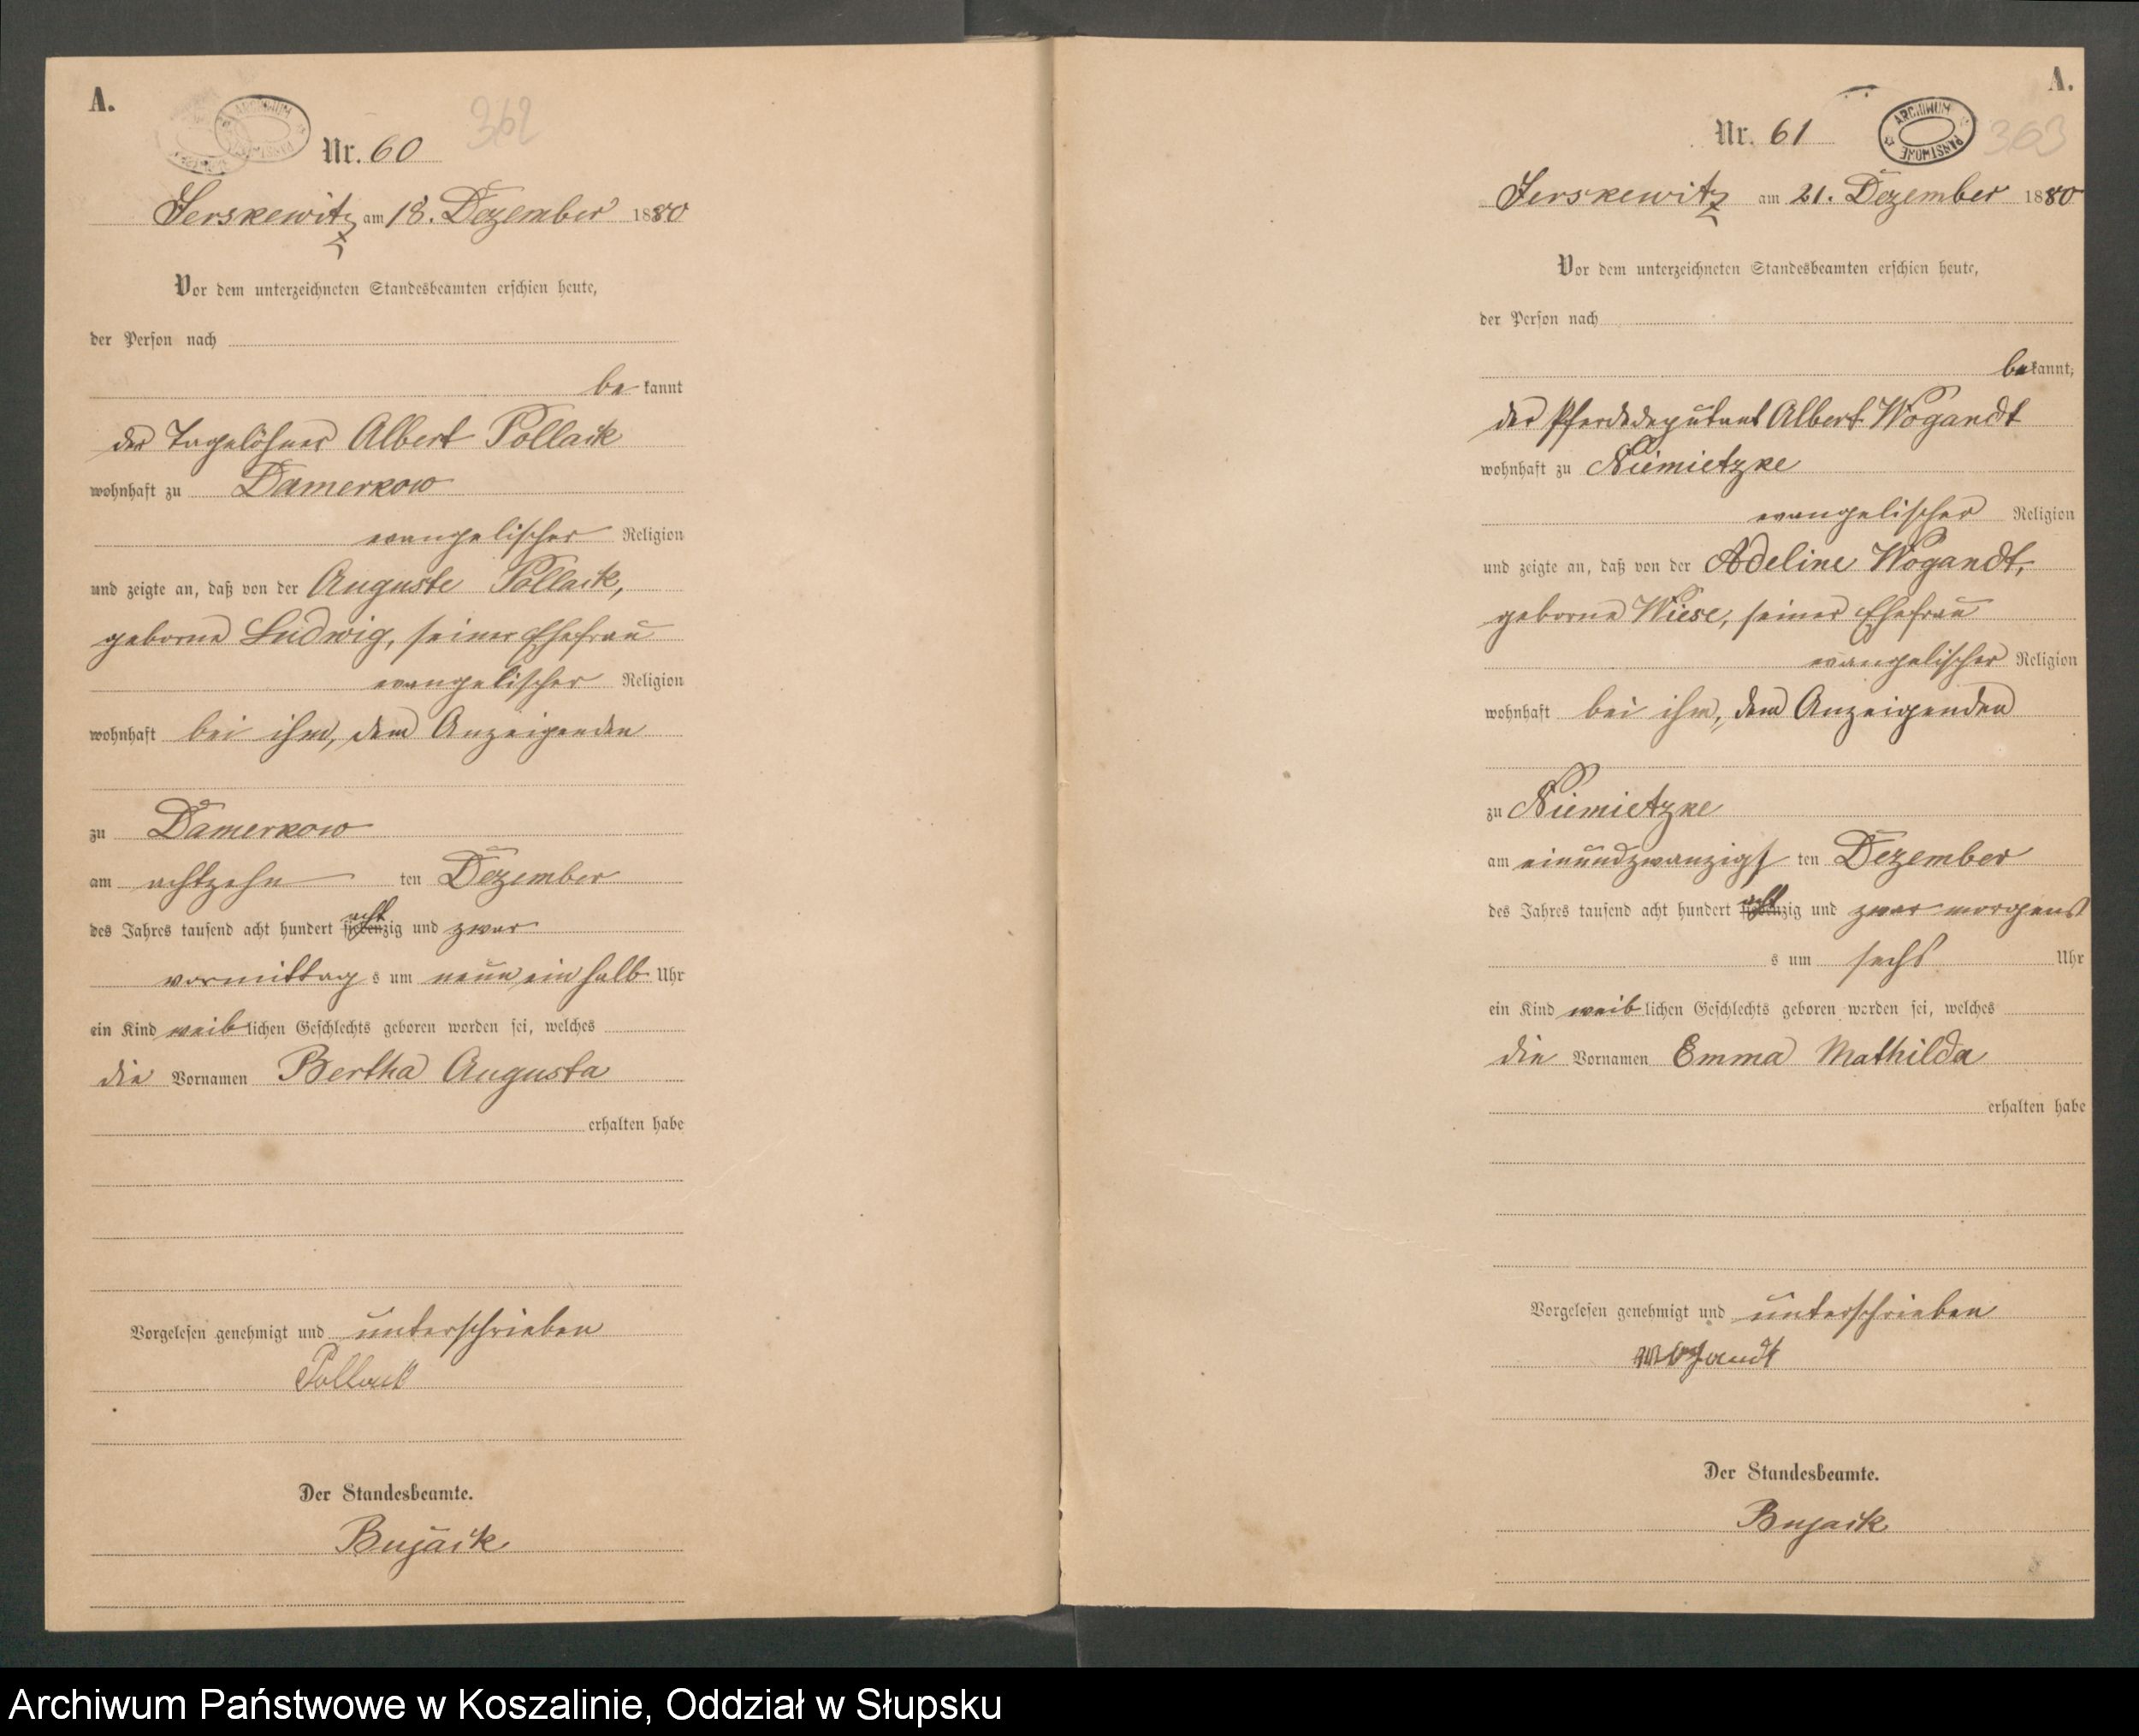 A.
ARCHIWUM PAŃSTWOWE
Nr. 60
362
Jerskewitz am 18. Dezember 1880
Vor dem unterzeichneten Standesbeamten erschien heute,
der Person nach
be kannt
der Tagelöhner Albert Pollack
wohnhaft zu Damerkow
evangelischer Religion
und zeigte an, daß von der Auguste Pollack,
geborne Ludwig, seiner Ehefrau
evangelischer Religion
wohnhaft bei ihm, dem Anzeigenden
zu Damerkow
am achtzehn ten Dezember
des Jahres tausend acht hundert siebenzig acht und zwar
vormittag s um neun ein halb Uhr
ein Kind weib lichen Geschlechts geboren worden sei, welches
die Vornamen Bertha Augusta
erhalten habe
Vorgelesen genehmigt und unterschrieben
Pollack
Der Standesbeamte.
Bujack
A.
Nr. 61
ARCHIWUM PAŃSTWOWE
363
Jerskewitz am 21. Dezember 1880
Vor dem unterzeichneten Standesbeamten erschien heute,
der Person nach
be kannt,
der Pferdedeputant Albert Wogandt
wohnhaft zu Niemietzke
evangelischer Religion
und zeigte an, daß von der Adeline Wogandt,
geborne Wiese, seiner Ehefrau
evangelischer Religion
wohnhaft bei ihm, dem Anzeigenden
zu Niemietzke
am einundzwanzigs ten Dezember
des Jahres tausend acht hundert siebenzig acht und zwar morgens
s um sechs Uhr
ein Kind weib lichen Geschlechts geboren worden sei, welches
die Vornamen Emma Mathilda
erhalten habe
Vorgelesen genehmigt und unterschrieben
Wogandt
Der Standesbeamte.
Bujack
Archiwum Państwowe w Koszalinie, Oddział w Słupsku